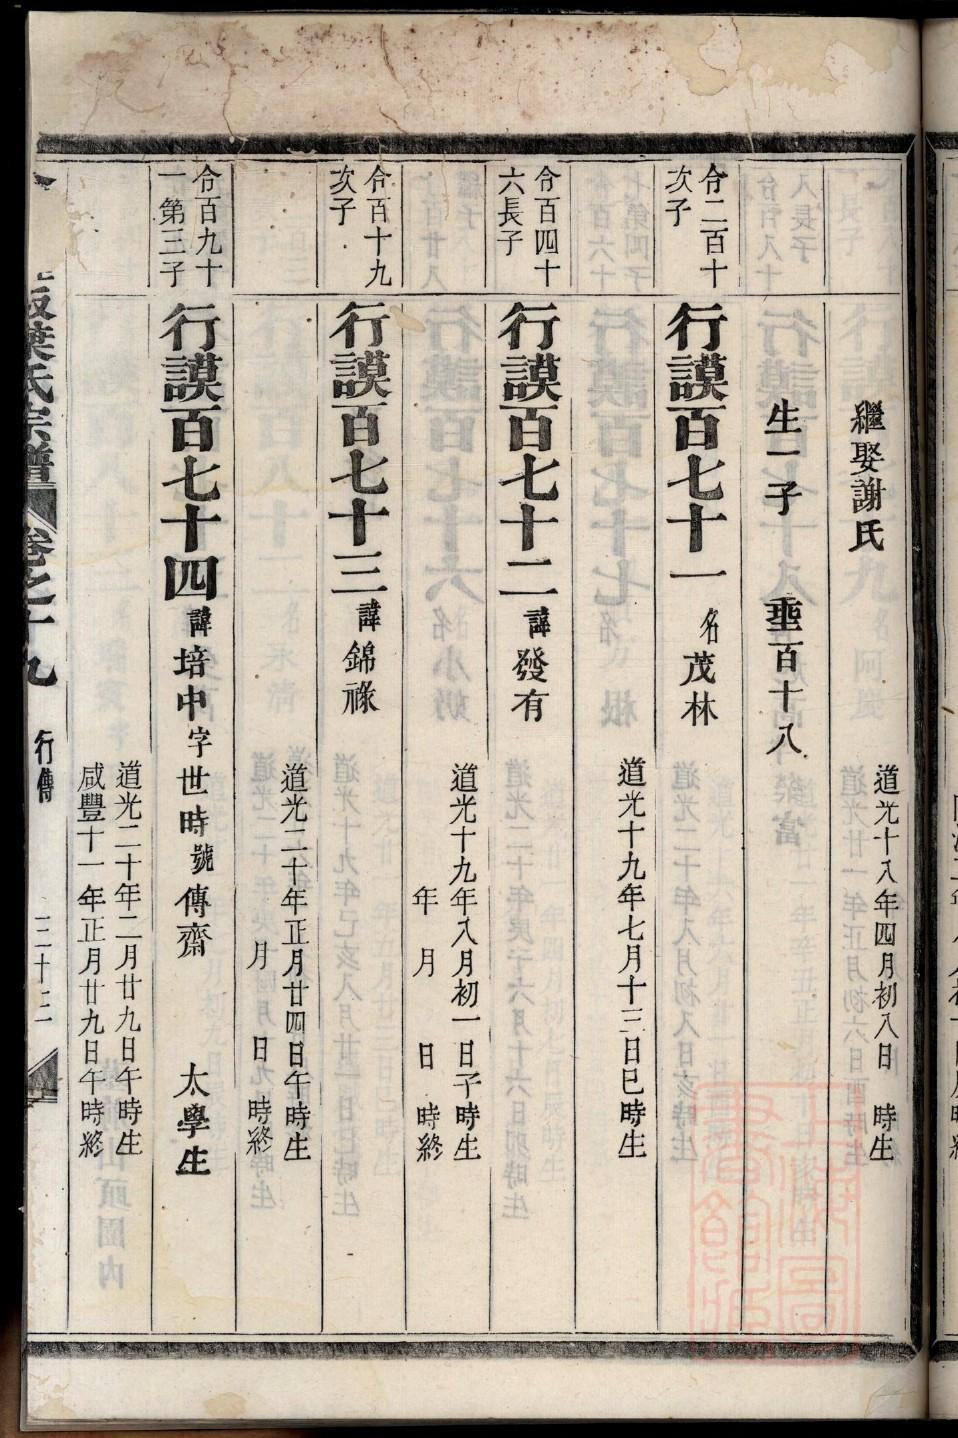 繼娶謝氏
道光十八年四月初八日　時生
生一子　垂百十八
令二百十
次子
行謨百七十一　名茂林
道光十九年七月十三日巳時生
令百四十
六長子
行謨百七十二　諱發有
道光十九年八月初一日子時生
年　月　日　時終
令百十九
次子
行謨百七十三　諱錦祿
道光二十年正月廿四日午時生
月　日　時終
令百九十
一第三子
行謨百七十四　諱培中字世時號傳齋　太學生
道光二十年二月廿九日午時生
咸豐十一年正月廿九日午時終
葉氏宗譜　卷之十九　行傳　三十三